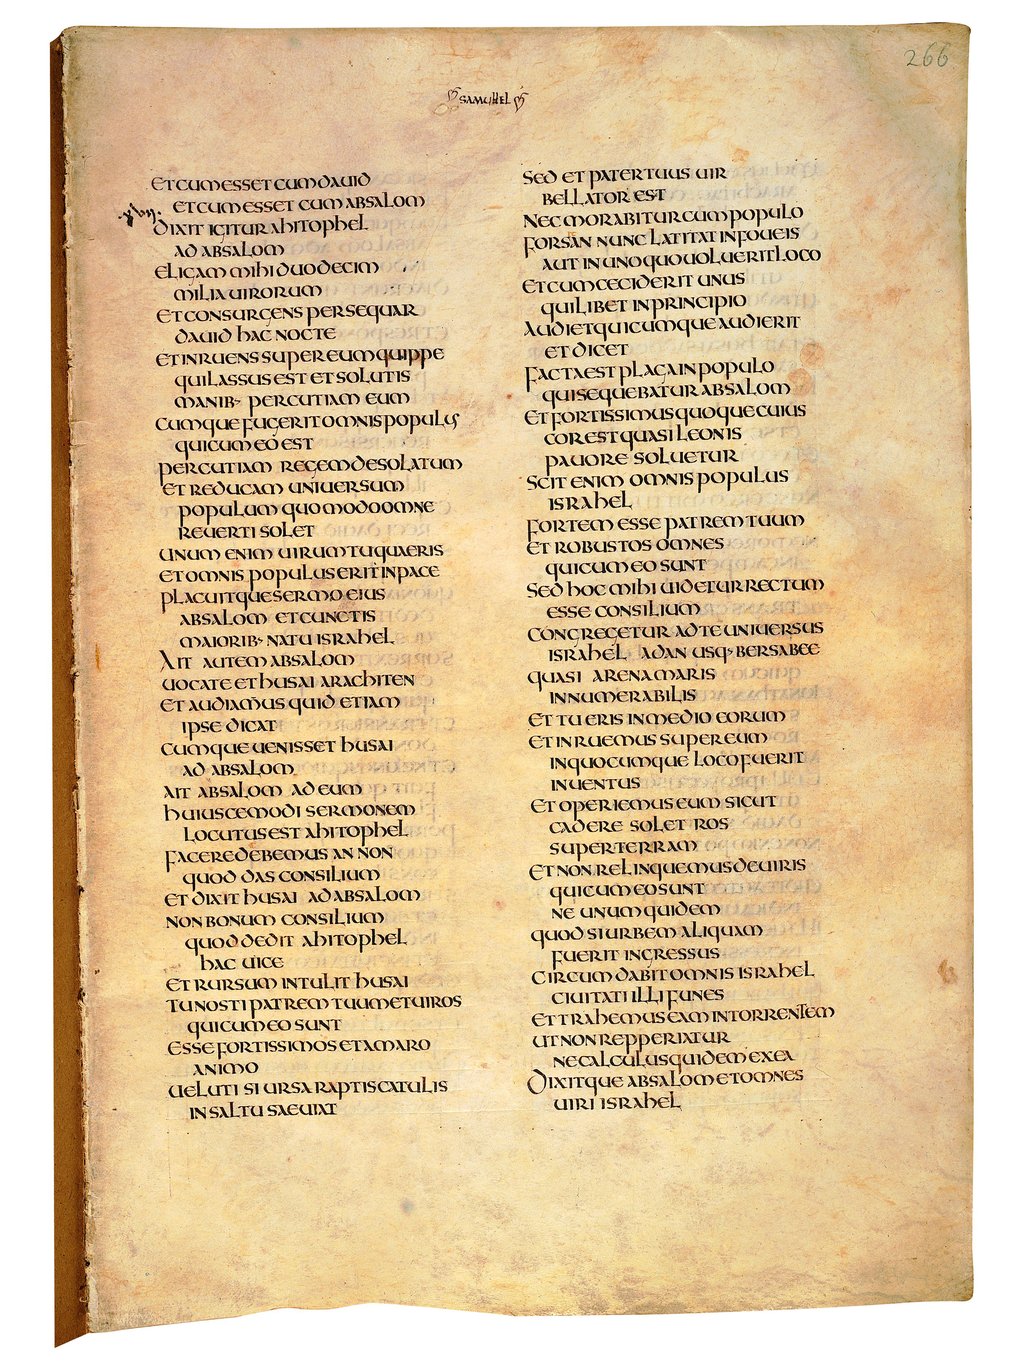 266
SAMUHEL
ET CUM ESSET CUM DAUID
ET CUM ESSET CUM ABSALOM
xvii. DIXIT IGITUR AHITOPHEL
AD ABSALOM
ELIGAM MIHI DUODECIM
MILIA UIRORUM
ET CONSURGENS PERSEQUAR
DAUID HAC NOCTE
ET INRUENS SUPER EUM QUIPPE
QUI LASSUS EST ET SOLUTIS
MANIB· PERCUTIAM EUM
CUMQUE FUGERIT OMNIS POPULUS
QUI CUM EO EST
PERCUTIAM REGEM DESOLATUM
ET REDUCAM UNIUERSUM
POPULUM QUOMODO OMNE
REUERTI SOLET
UNUM ENIM UIRUM TU QUAERIS
ET OMNIS POPULUS ERIT IN PACE
PLACUITQUE SERMO EIUS
ABSALOM ET CUNCTIS
MAIORIB· NATU ISRAHEL
AIT AUTEM ABSALOM
UOCATE ET HUSAI ARACHITEN
ET AUDIAMUS QUID ETIAM
IPSE DICAT
CUMQUE UENISSET HUSAI
AD ABSALOM
AIT ABSALOM AD EUM
HUIUSCEMODI SERMONEM
LOCUTUS EST AHITOPHEL
FACERE DEBEMUS AN NON
QUOD DAS CONSILIUM
ET DIXIT HUSAI AD ABSALOM
NON BONUM CONSILIUM
QUOD DEDIT AHITOPHEL
HAC UICE
ET RURSUM INTULIT HUSAI
TU NOSTI PATREM TUUM ET UIROS
QUI CUM EO SUNT
ESSE FORTISSIMOS ET AMARO
ANIMO
UELUTI SI URSA RAPTIS CATULIS
IN SALTU SAEUIAT
SED ET PATER TUUS UIR
BELLATOR EST
NEC MORABITUR CUM POPULO
FORSAN NUNC LATITAT IN FOUEIS
AUT IN UNO QUO UOLUERIT LOCO
ET CUM CECIDERIT UNUS
QUILIBET IN PRINCIPIO
AUDIET QUICUMQUE AUDIERIT
ET DICET
FACTA EST PLAGA IN POPULO
QUI SEQUEBATUR ABSALOM
ET FORTISSIMUS QUOQUE CUIUS
COR EST QUASI LEONIS
PAUORE SOLUETUR
SCIT ENIM OMNIS POPULUS
ISRAHEL
FORTEM ESSE PATREM TUUM
ET ROBUSTOS OMNES
QUI CUM EO SUNT
SED HOC MIHI UIDETUR RECTUM
ESSE CONSILIUM
CONGREGETUR AD TE UNIUERSUS
ISRAHEL A DAN USQ· BERSABEE
QUASI ARENA MARIS
INNUMERABILIS
ET TU ERIS IN MEDIO EORUM
ET INRUEMUS SUPER EUM
IN QUOCUMQUE LOCO FUERIT
INUENTUS
ET OPERIEMUS EUM SICUT
CADERE SOLET ROS
SUPER TERRAM
ET NON RELINQUEMUS DE UIRIS
QUI CUM EO SUNT
NE UNUM QUIDEM
QUOD SI URBEM ALIQUAM
FUERIT INGRESSUS
CIRCUMDABIT OMNIS ISRAHEL
CIUITATI ILLI FUNES
ET TRAHEMUS EAM IN TORRENTEM
UT NON REPPERIATUR
NE CALCULUS QUIDEM EX EA
DIXITQUE ABSALOM ET OMNES
UIRI ISRAHEL